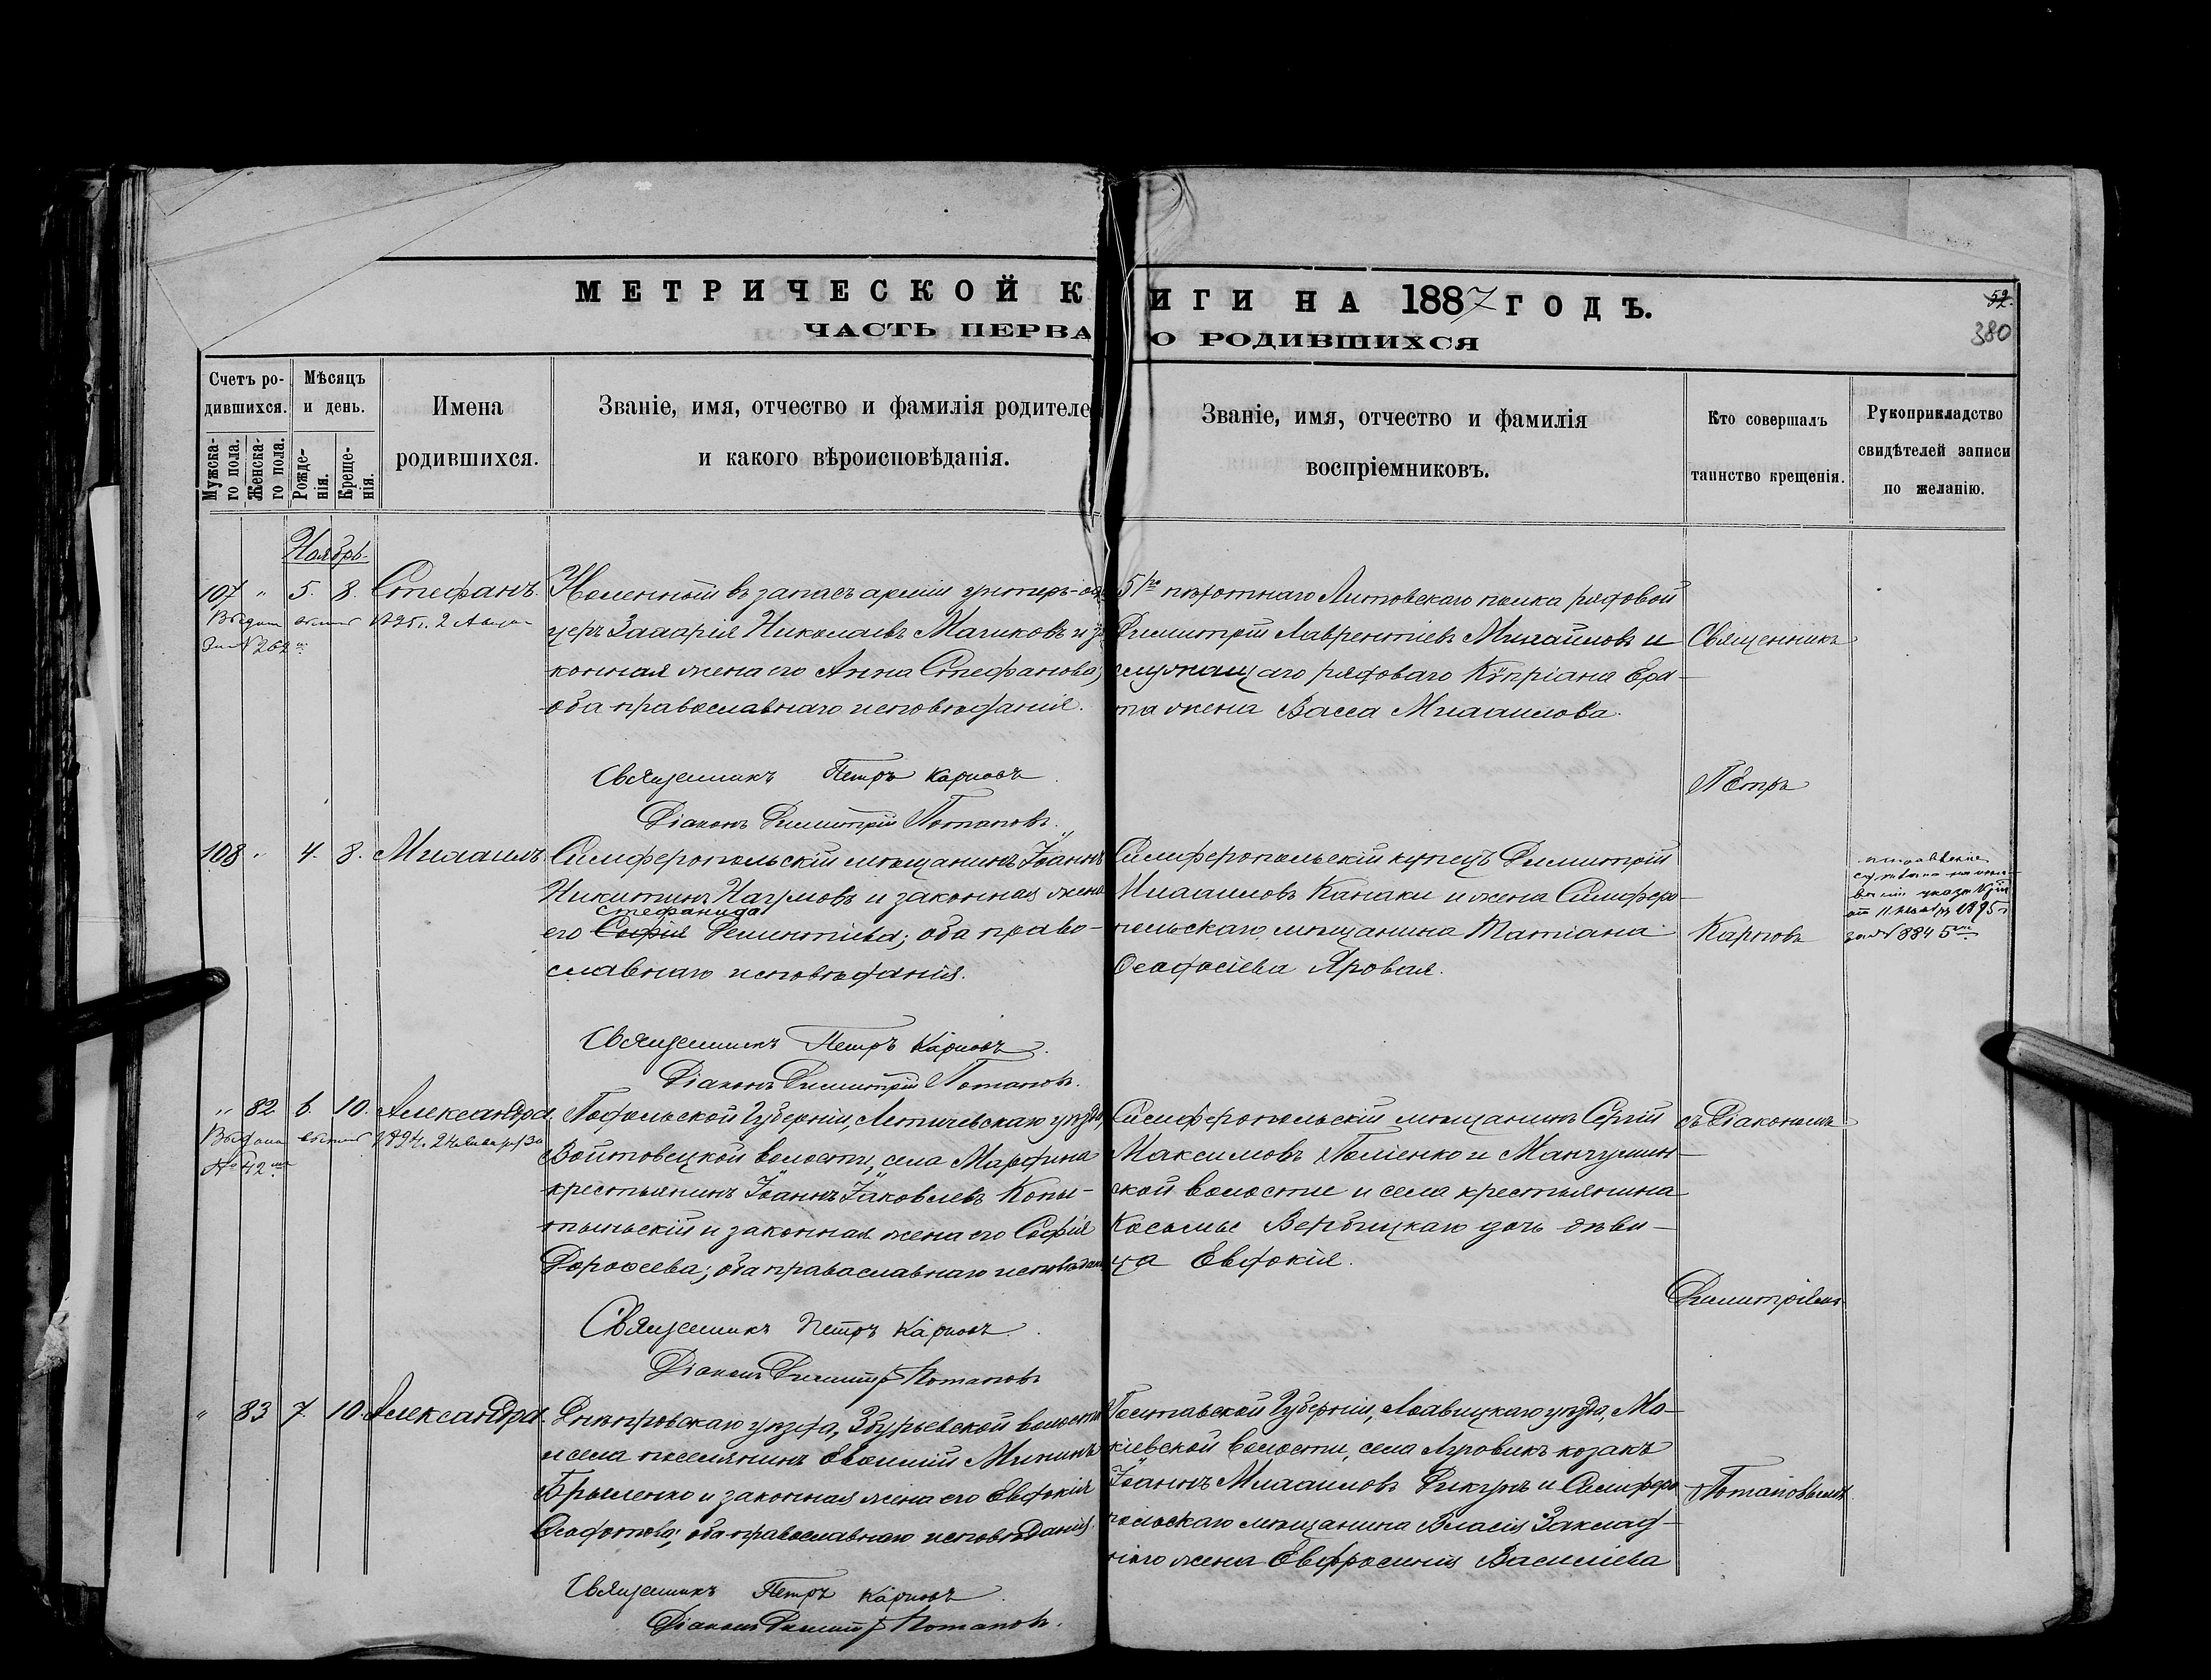 МЕТРИЧЕСКОЙ К ИГИ НА 1887 ГОДЪ.
ЧАСТЬ ПЕРВА О РОДИВШИХСЯ
52.
380
Счетъ ро-
дившихся.
Мужска-
го пола.
Женска-
го пола.
Мѣсяцъ
и день.
Рожде-
нія.
Креще-
нія.
Имена
родившихся.
Званіе, имя, отчество и фамилія родителе
и какого вѣроисповѣданія.
Званіе, имя, отчество и фамилія
воспріемниковъ.
Кто совершалъ
таинство крещенія.
Рукоприкладство
свидѣтелей записи
по желанію.
Ноябрь.
107 " 5. 8. Стефанъ.
1895 г. 2
За № 262
въ запасъ арміи унтеръ-оф
церъ Захарія Николаевъ Мачиковъ и за
конная жена его Анна Стефанова;
оба православнаго исповѣданія.
51го пѣхотнаго Литовскаго полка рядовой
Димитрій Лаврентіевъ Михайловъ и
служащаго рядоваго Кѵпріана
жена Васса Михаилова.
Священникъ Петръ Карповъ
Діаконъ Димитрій Потаповъ.
108 " 4. 8. Михаилъ.
Симферопольскій мѣщанинъ Іоаннъ
Никитинъ Наумовъ и законная жена
Стефанида
его София Дементіева; оба право-
славнаго исповѣданія.
Симферопольскій купецъ Димитрій
Михаиловъ Канаки и жена Симферо-
польскаго мѣщанина Татіана
Ѳеодосіева Яровая.
от 11 1895 г.
за № 8845
Священникъ Петръ Карповъ.
Діаконъ Димитрій Потаповъ.
" 82 6. 10. Александра.
Выдана 1894. 24 Января за
№ 42
Подольской Губерніи, Летичевскаго уѣзда,
Войтовецкой волости, села Марфина
крестьянинъ Іоаннъ Іаковлевъ Копы-
тынскій и законная жена его Софія
Дороѳеева; оба православнаго исповѣдан
Симферопольскій мѣщанинъ Сергій
Максимовъ Поліенко и Мангушин-
ской волости и села крестьянина
Косьмы Вербицкаго дочь дѣви-
ца Евдокія.
Священникъ Петръ Карповъ.
Діаконъ Димитр Потаповъ
" 83 7. 10. Александра.
Днѣпровскаго уѣзда, Збурьевской волости
и села поселянинъ Евѳимій Мининъ
Брыленко и законная жена его Евдокія
Ѳеодотова; оба православнаго исповѣданія.
Полтавской Губерніи, уѣзда, Мо-
кіевской волости, села козакъ
Іоаннъ Михаиловъ Дикунъ и Симферо
польскаго мѣщанина Власія Заклад-
наго жена Евфросинія Василіева
Священникъ Петръ Карповъ.
Діаконъ Димит Потаповъ.
Священникъ
Петръ
Карповъ
съ Діакономъ
Димитріемъ
Потаповымъ.